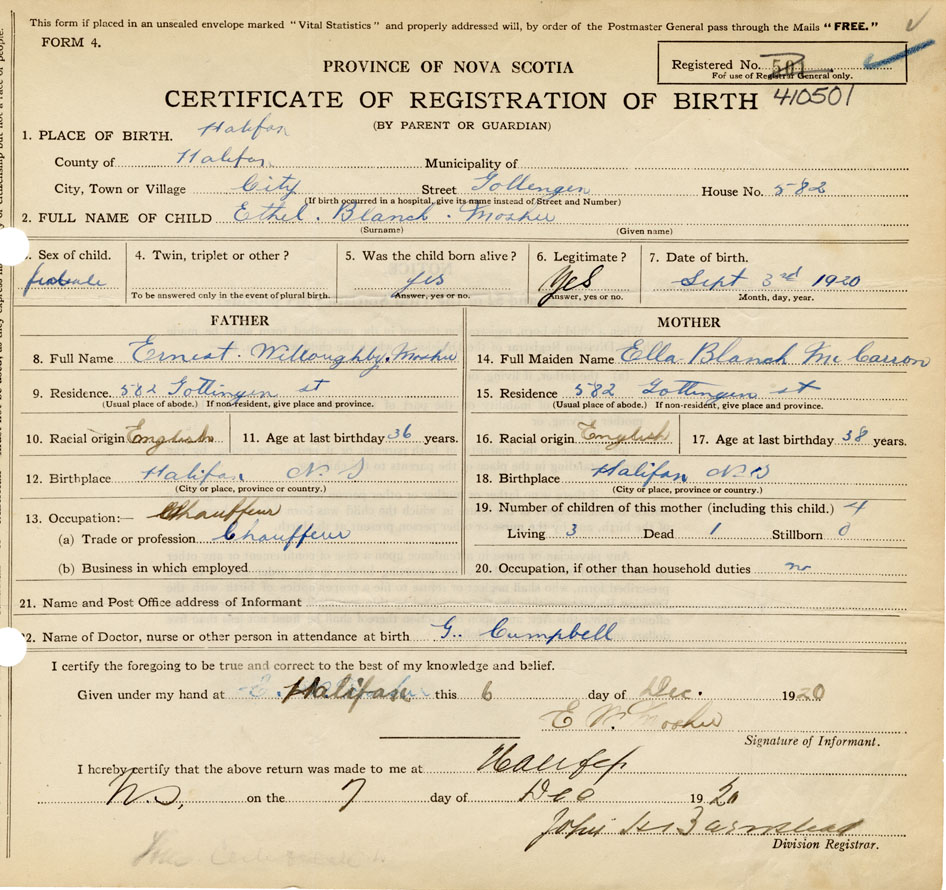 This form if placed in an unsealed envelope marked "Vital Statistics" and properly addressed will, by order of the Postmaster General pass through the Mails "FREE."
FORM 4.
Registered No. 501
For use of Registrar General only.
PROVINCE OF NOVA SCOTIA
CERTIFICATE OF REGISTRATION OF BIRTH 410501
(BY PARENT OR GUARDIAN)
1. PLACE OF BIRTH. Halifax
County of Halifax Municipality of
City, Town or Village City Street Gottengen House No. 582
(If birth occurred in a hospital, give its name instead of Street and Number)
2. FULL NAME OF CHILD Ethel. Blanch. Mosher
(Surname) (Given name)
3. Sex of child. 4. Twin, triplet or other? 5. Was the child born alive? 6. Legitimate? 7. Date of birth.
female yes Yes Sept 3rd 1920
To be answered only in the event of plural birth. Answer, yes or no. Answer, yes or no. Month, day, year.
FATHER MOTHER
8. Full Name Ernest. Willoughby. Mosher 14. Full Maiden Name Ella Blanch McCarron
9. Residence. 582 Gottingen st 15. Residence 582 Gottingen st
(Usual place of abode.) If non-resident, give place and province. (Usual place of abode.) If non-resident, give place and province.
10. Racial origin English 11. Age at last birthday 36 years. 16. Racial origin English 17. Age at last birthday 38 years.
12. Birthplace Halifax N.S 18. Birthplace Halifax N.S
(City or place, province or country.) (City or place, province or country.)
13. Occupation:— Chauffeur 19. Number of children of this mother (including this child.) 4
(a) Trade or profession Chauffeur Living 3 Dead 1 Stillborn 0
(b) Business in which employed 20. Occupation, if other than household duties no
21. Name and Post Office address of Informant
22. Name of Doctor, nurse or other person in attendance at birth G. Campbell
I certify the foregoing to be true and correct to the best of my knowledge and belief.
Given under my hand at Halifax this 6 day of Dec. 1920
E W. Mosher
Signature of Informant.
I hereby certify that the above return was made to me at Halifax
N.S, on the 7 day of Dec 1920
John H Barnstead
Division Registrar.